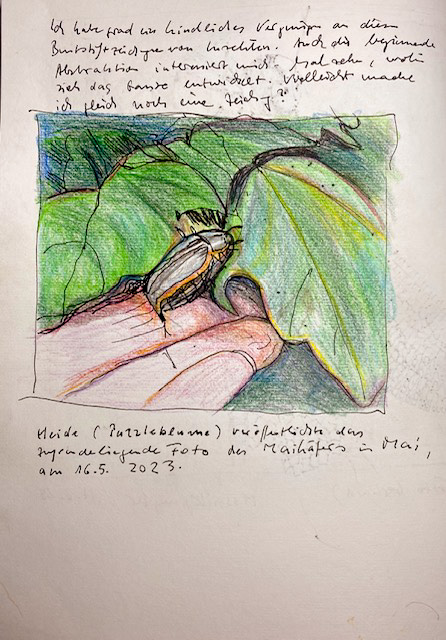 Ich habe grad ein kindliches Vergnügen an diesen
Buntstiftzeichnungen von Insekten. Auch die beginnende
Abstraktion interessiert mich. Mal sehen, wohin
sich das Ganze entwickelt. Vielleicht mache
ich gleich noch eine Zeichng?
Heide (Puzzleblume) veröffentlichte das
zugrundeliegende Foto des Maikäfers im Mai,
am 16.5. 2023.